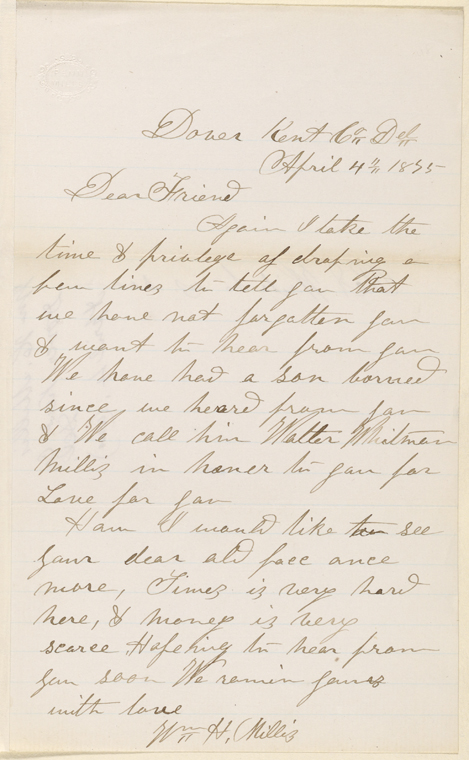 Dover Kent Co Del
April 4th 1875
Dear Friend
Again I take the
time & privlege of droping a
few lines to tell you that
we have not forgotten you
& want to hear from you
We have had a son borned
since we heard from you
& We call him Walter Whitman
Millis in honer to you for
Love for you
How I would like to see
your dear old face once
more, Times is very hard
here, & money is very
scarce Hopeing to hear from
you soon We remin yours
with love
Wm H, Millis